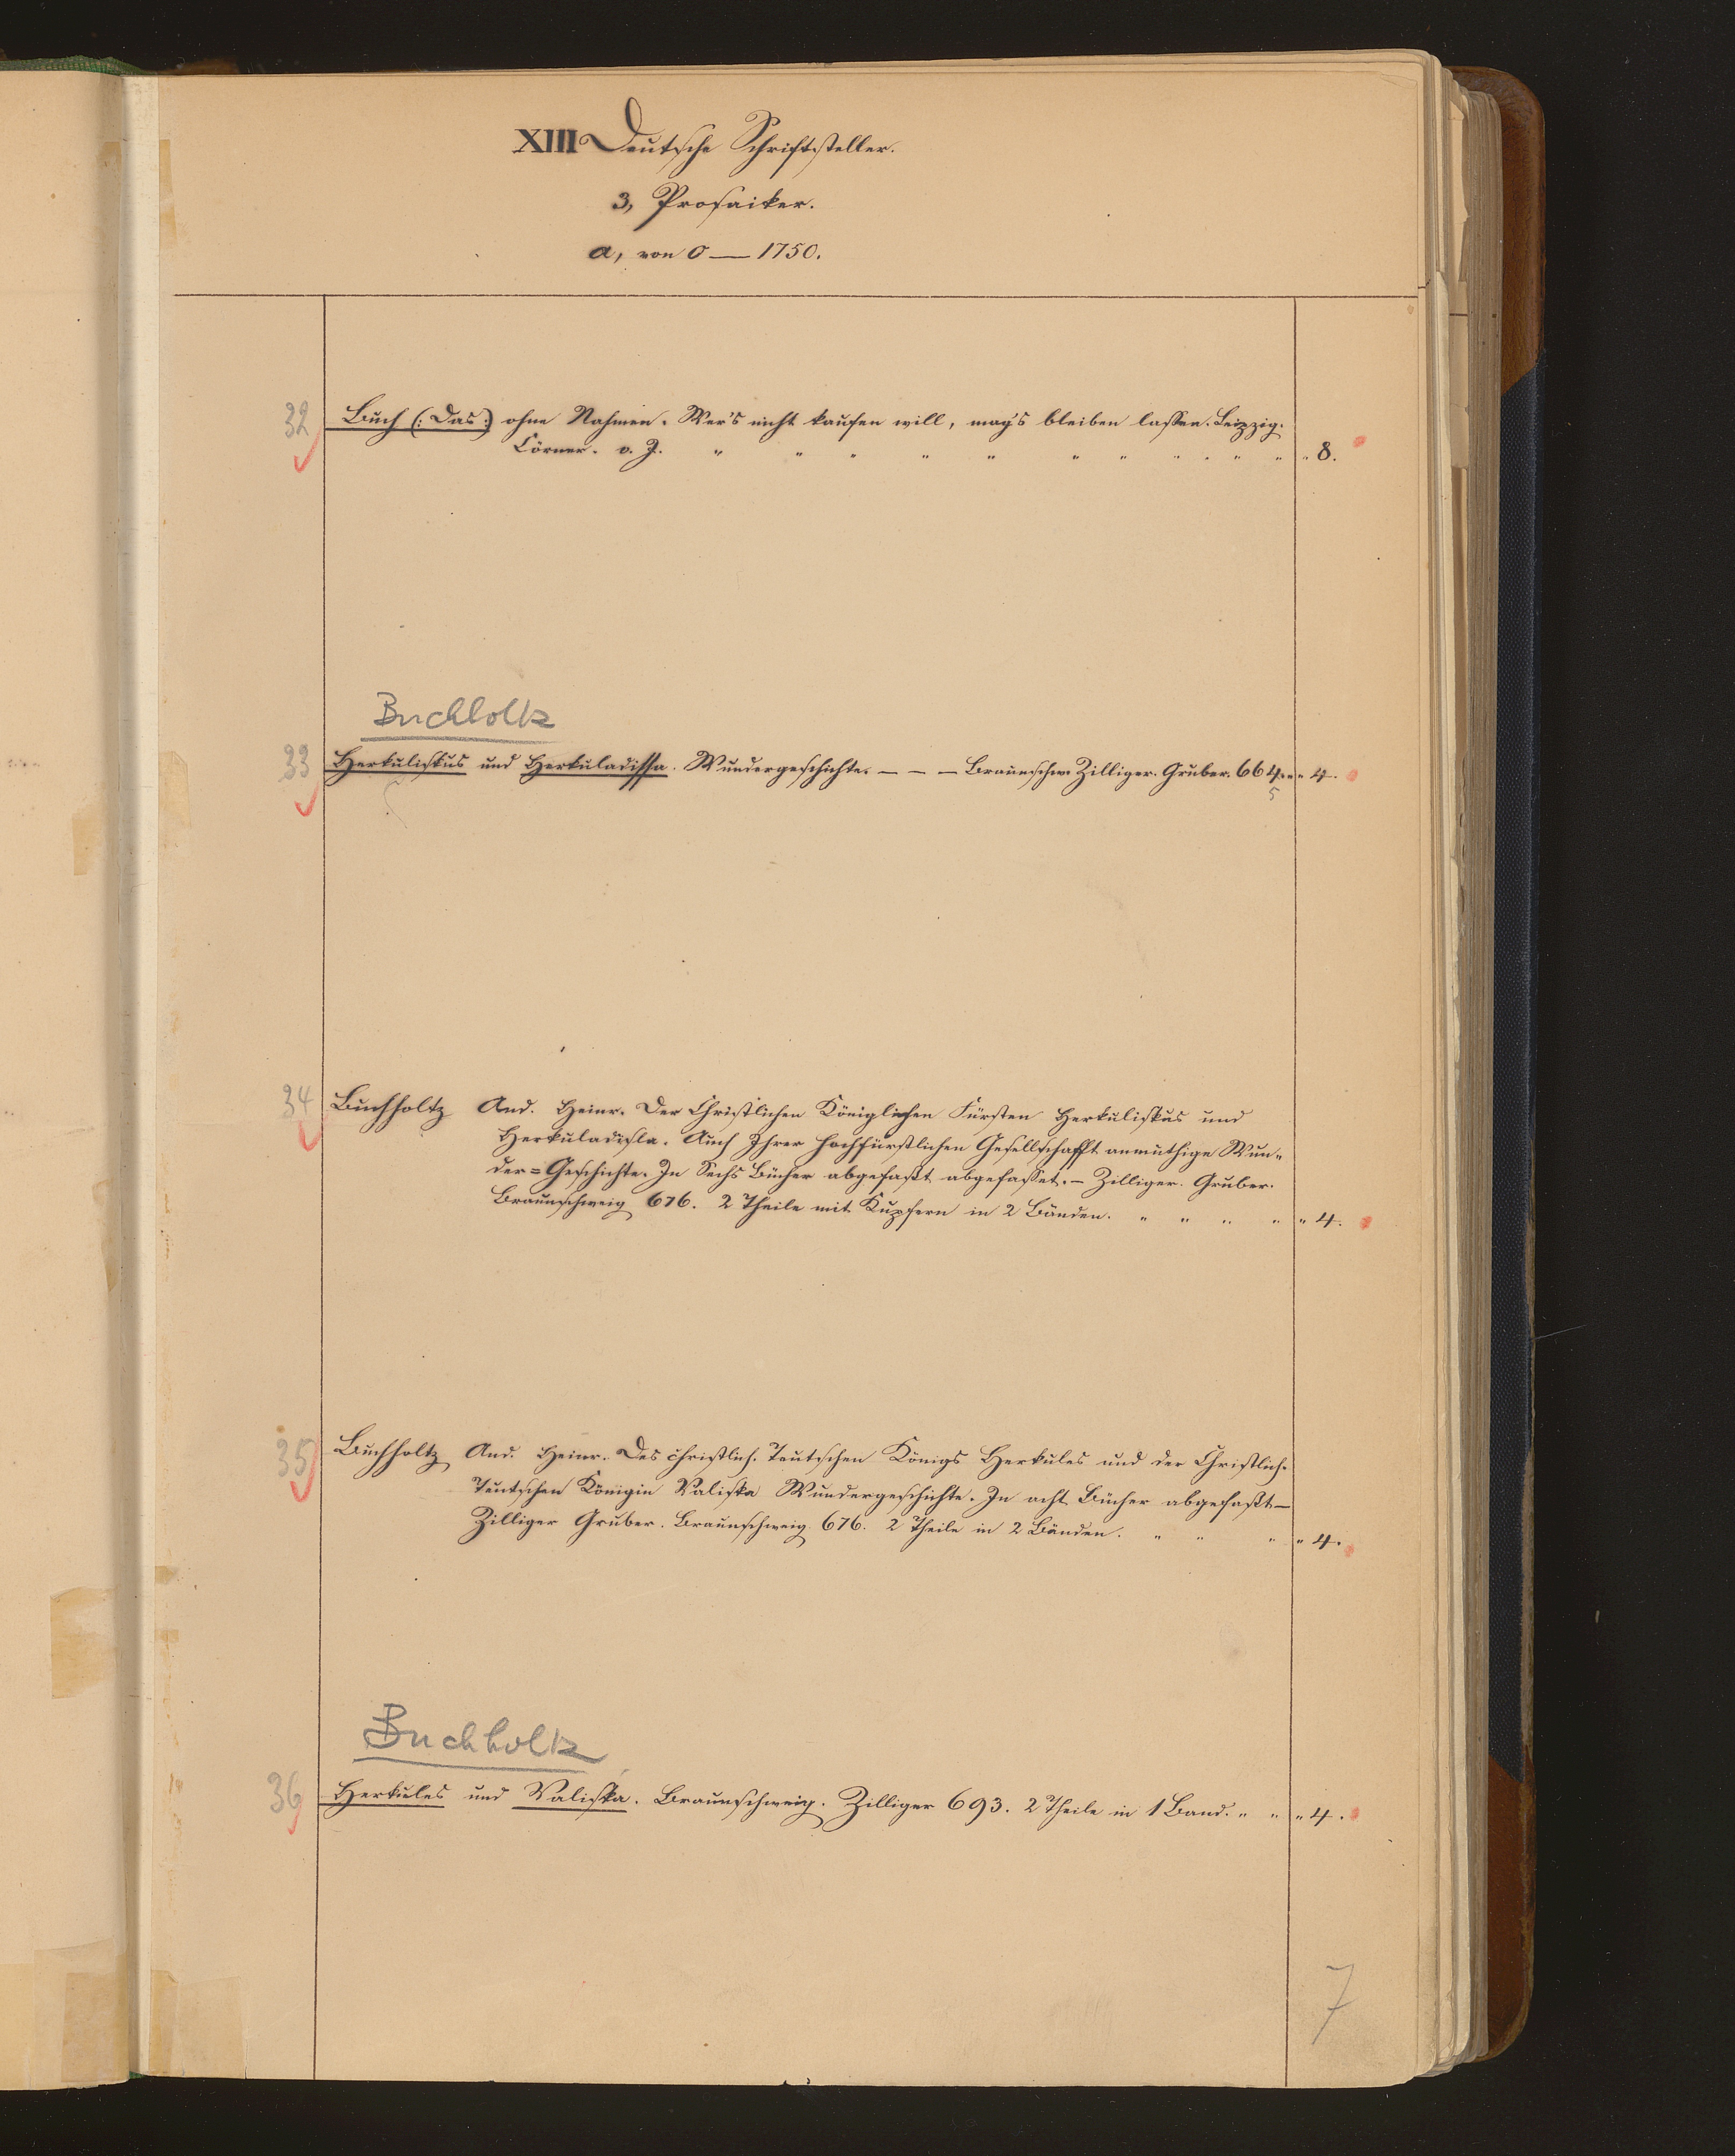 XIII Deutsche Schriftsteller.
3, Prosaiker.
a, von 0 — 1750.
32 Buch (: Das :) ohne Nahmen. Wer's nicht kaufen will, mag's bleiben lassen. Leipzig.
Cörner. o. J. " " " " " " " " " " " " 8.
Buchholtz
33 Herkuliskus und Herkuladissa. Wundergeschichte. — — — Braunschw. Zilliger. Gruber. 664. " " 4.
5
34 Buchholtz And. Heinr. Der Christlichen Königlichen Fürsten Herkuliskus und
Herkuladisla. Auch Ihrer hochfürstlichen Gesellschafft anmuthige Wun-
der=Geschichte. In Sechs Bücher abgefaßt abgefasset. — Zilliger. Gruber.
Braunschweig 676. 2 Theile mit Kupfern in 2 Bänden. " " " " " 4.
35 Buchholtz And. Heinr. Des christlich. Teutschen Königs Herkules und der Christlich.
Teutschen Königin Valiska Wundergeschichte. In acht Bücher abgefaßt —
Zilliger Gruber. Braunschweig 676. 2 Theile in 2 Bänden. " " " " 4.
Buchholtz
36 Herkules und Valiska. Braunschweig. Zilliger 693. 2 Theile in 1 Band. " " " 4.
7